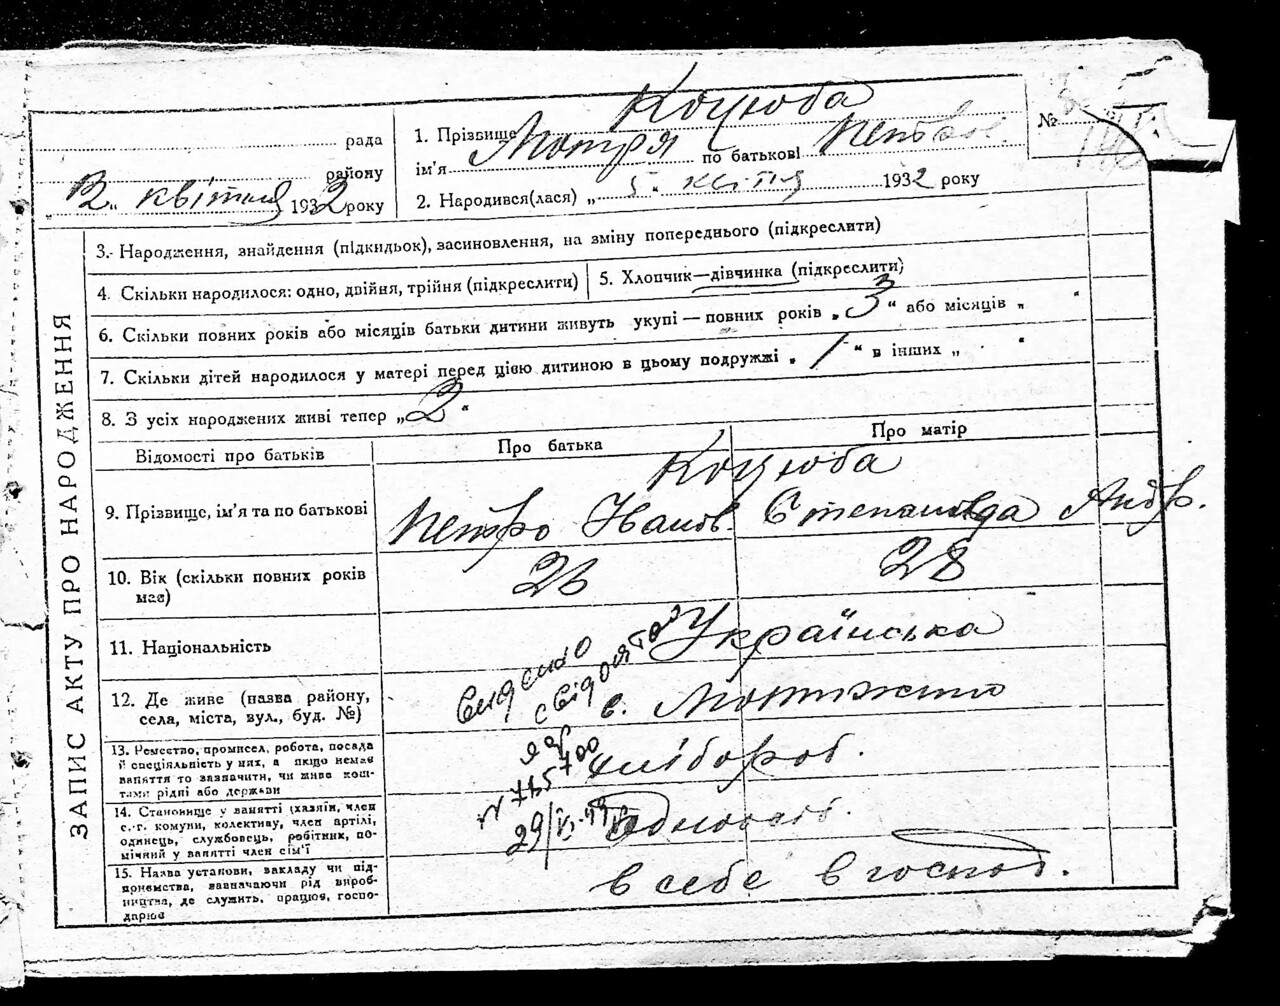 Коцюба
рада
1. Прізвище
№
району
ім'я Мотря по батькові Петров.
„12" квітня 1932 року
2. Народився(лася) „5" квітня 1932 року
ЗАПИС АКТУ ПРО НАРОДЖЕННЯ
3. Народження, знайдення (підкидьок), засиновлення, на зміну попереднього (підкреслити)
4. Скільки народилося: одно, двійня, трійня (підкреслити)
5. Хлопчик—дівчинка (підкреслити)
6. Скільки повних років або місяців батьки дитини живуть укупі — повних років „3" або місяців „ "
7. Скільки дітей народилося у матері перед цією дитиною в цьому подружжі „1" в інших „ "
8. З усіх народжених живі тепер „2"
Відомості про батьків
Про батька
Про матір
Коцюба
9. Прізвище, ім'я та по батькові
Петро Іванов. Степанида Андр.
10. Вік (скільки повних років
має)
26
28
11. Національність
Українська
12. Де живе (назва району,
села, міста, вул., буд. №)
с. Мотижин
13. Ремество, промисел, робота, посада
й спеціяльність у них, а якщо немає
заняття то зазначити, чи живе кош-
тами рідні або держави
хлібороб.
14. Становище у занятті (хазяїн, член
с.-г. комуни, колективу, член артілі,
одинець, службовець, робітник, по-
мічний у занятті член сім'ї
одноосіб.
15. Назва установи, закладу чи під-
приємства, зазначаючи рід вироб-
ництва, де служить, працює, госпо-
дарює
в себе в господ.
Видано
свідоцтво
№ 715700
29/VI-49